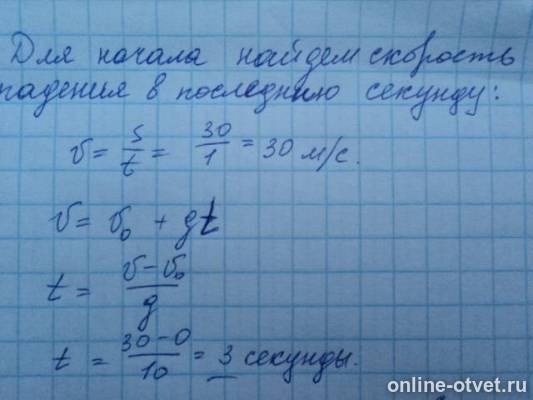 Для начала найдем скорость
падения в последнюю секунду:
v = s/t = 30/1 = 30 м/с.
v = v₀ + gt
t = (v - v₀)/g
t = (30 - 0)/10 = 3 секунды.
online-otvet.ru